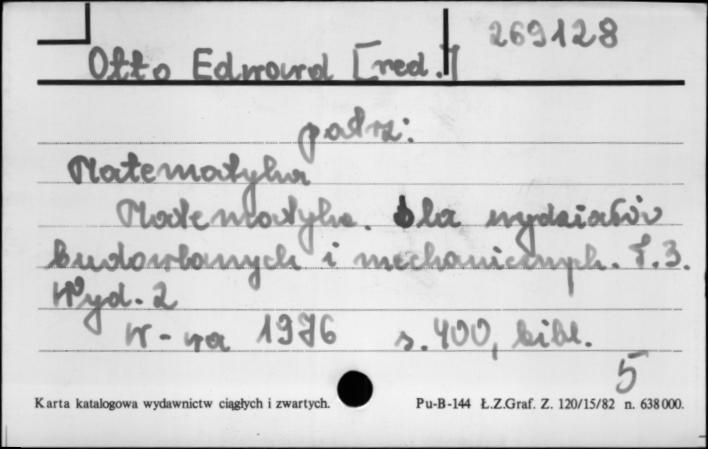 269128
Otto Edward [red.]
patrz:
Matematyka
Matematyka. Dla wydziałów
budowlanych i mechanicznych. T. 3.
Wyd. 2
W-wa 1976 s. 400, bibl.
5
Karta katalogowa wydawnictw ciągłych i zwartych. Pu-B-144 Ł.Z.Graf. Z. 120/15/82 n. 638000.